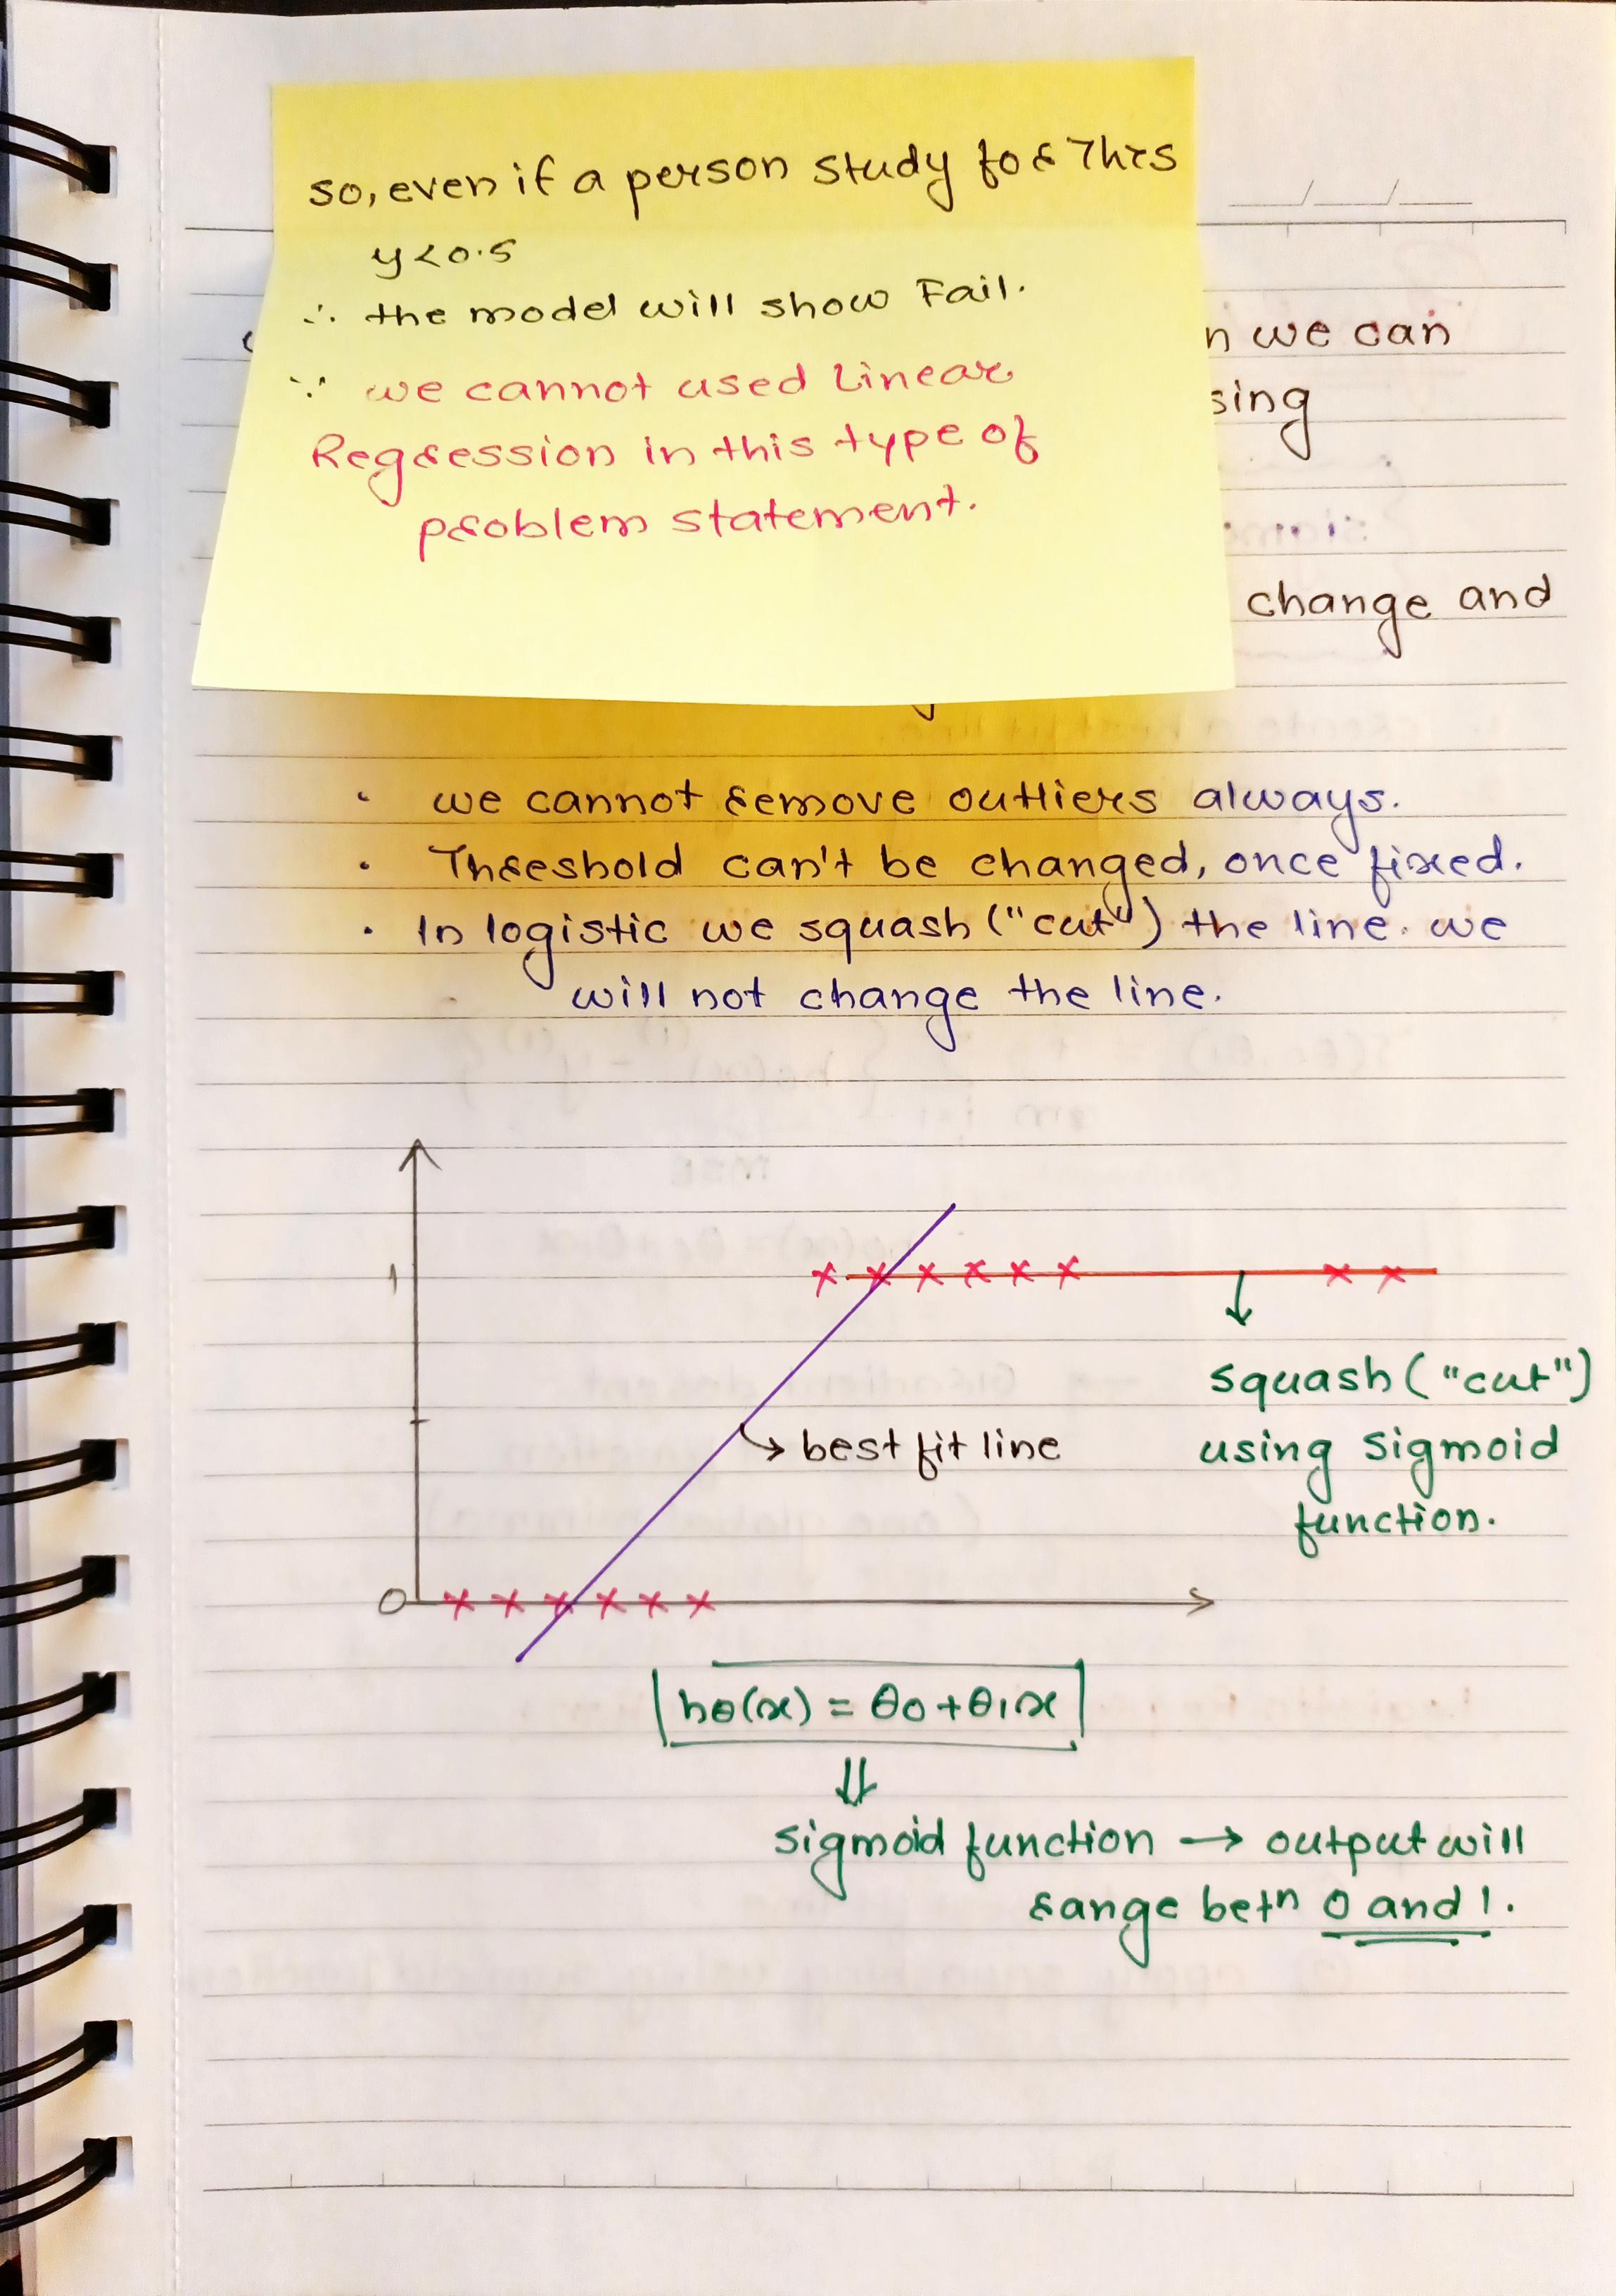 so, even if a person study for 7hrs
y<0.5
∴ the model will show Fail.
∵ we cannot used Linear
Regression in this type of
problem statement.
we can
change and
• we cannot remove outliers always.
• Threshold can't be changed, once fixed.
• In logistic we squash ("cut") the line. we
will not change the line.
1
squash ("cut")
best fit line
using sigmoid
function.
0
hθ(x) = θ0 + θ1x
⇓
sigmoid function → output will
range betn 0 and 1.